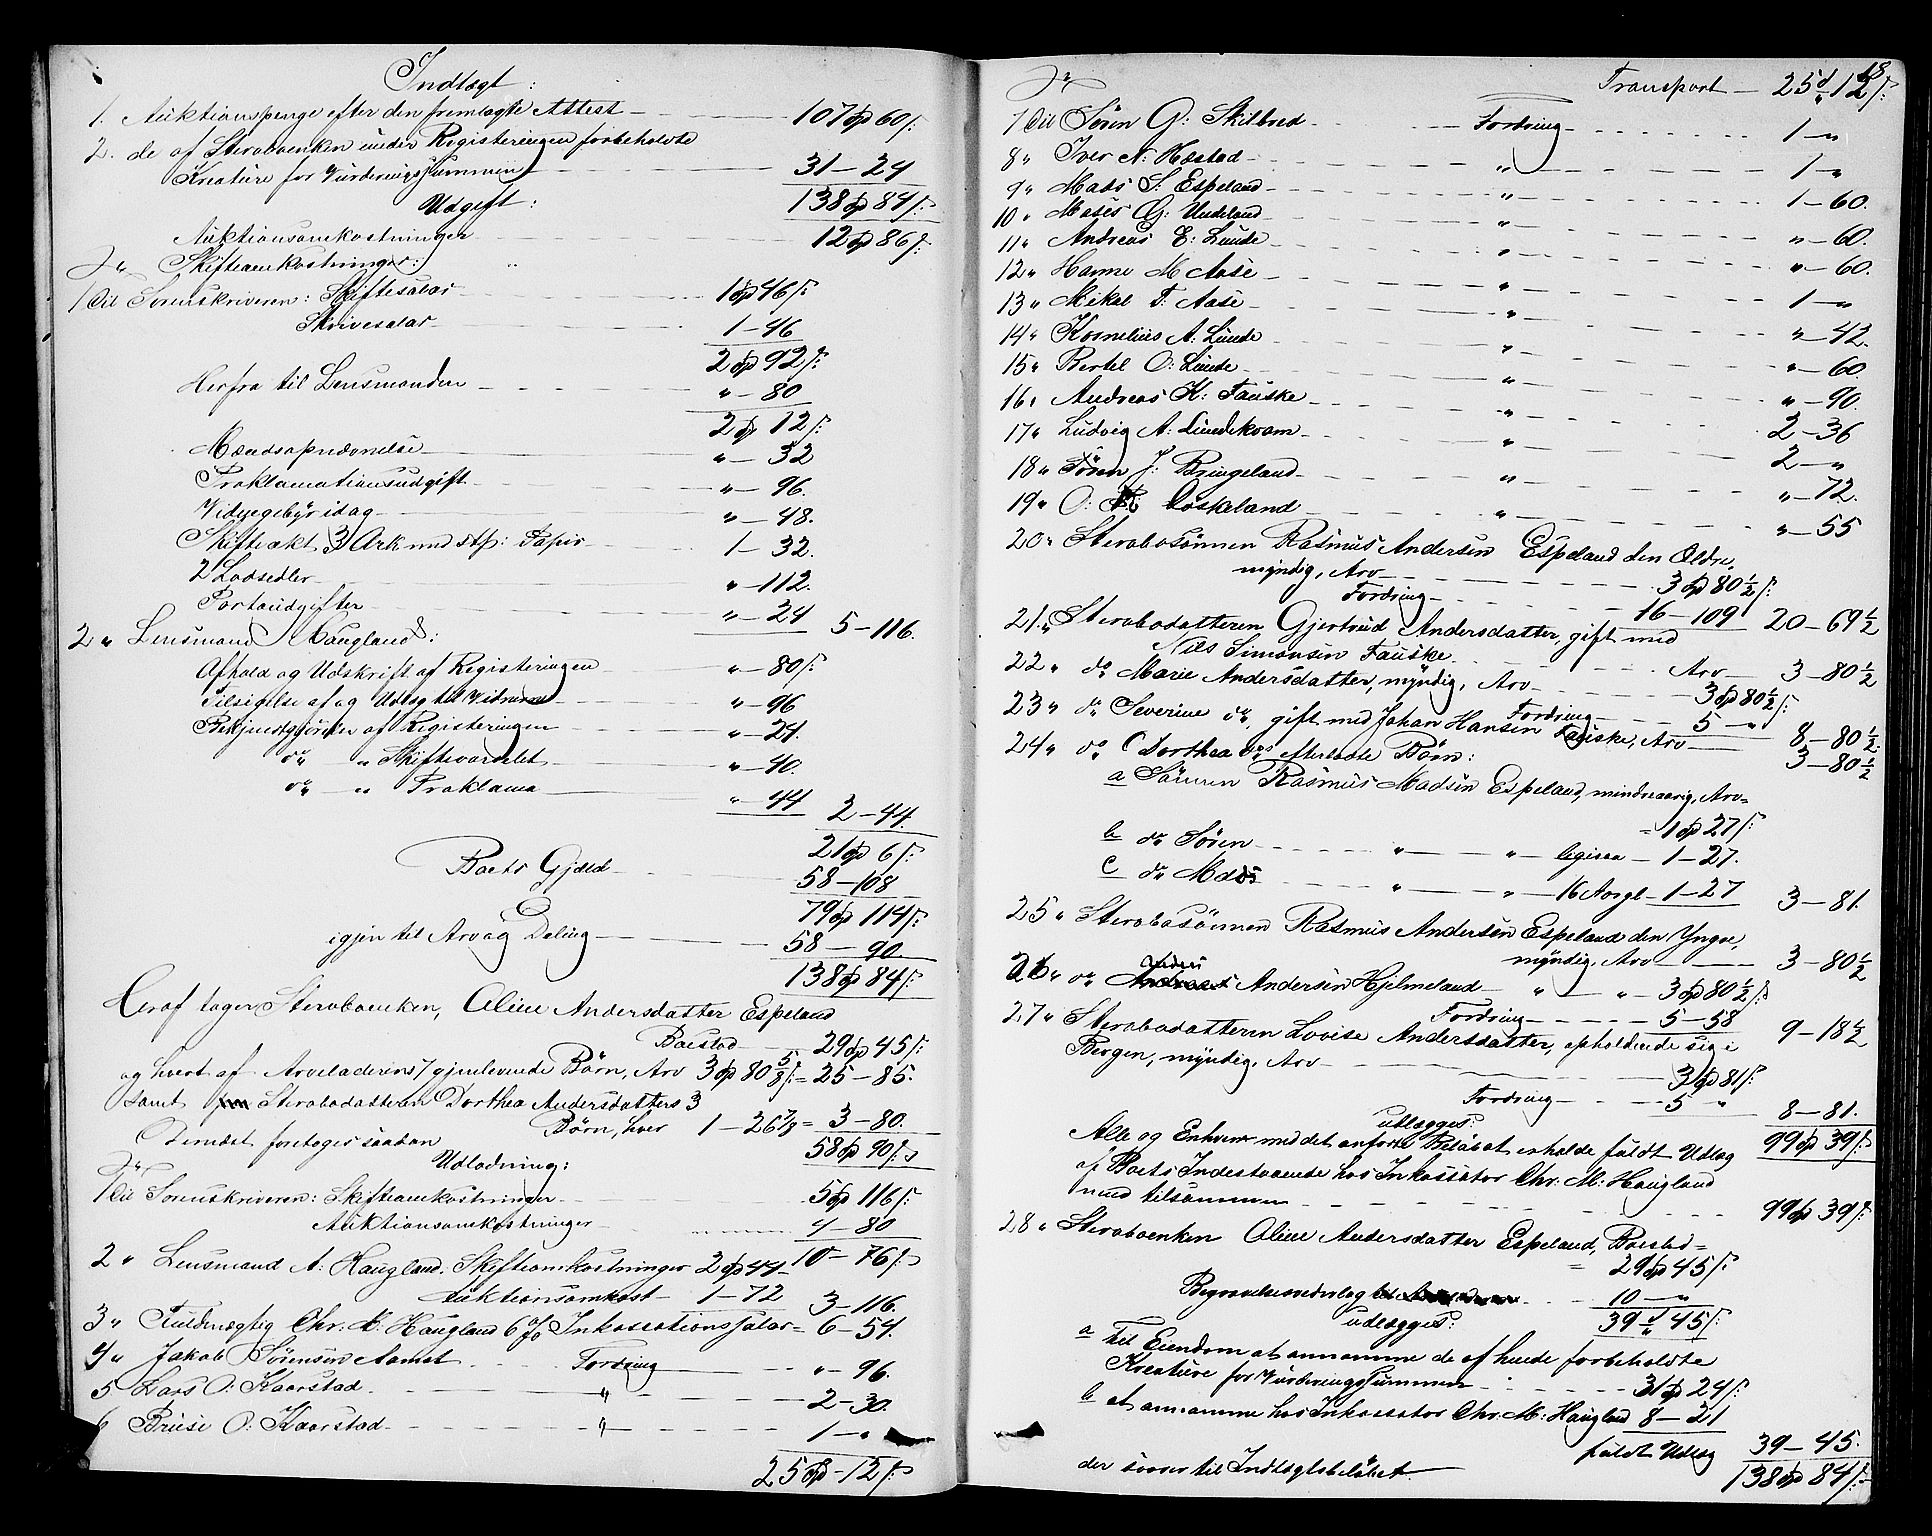 Indtægt:
1. Auktionspenge efter den fremlagte Attest — 107 Spd 60 s:
2. de af Stervboenken under Registeringen forbeholdte
Kreature for Vurderingssummen — 31 — 24
138 Spd 84 s:
Udgift:
Auktionsomkostninger — 12 Spd 86 s:
Skifteomkostninger:
1 til Sorenskriveren: Skiftesalær — 1 Spd 46 s:
Skrivesalær — 1 — 46
2 Spd 92 s:
Herfra til Lensmanden — " — 80
2 Spd 12 s:
— " — 32
Proklamationsudgift — " — 96.
idag — " — 48.
Skifteakt 3 Ark med stp: Papir — 1 — 32.
2 Lodsedler — " — 112.
Portoudgifter — " — 24 5 — 116.
2 " Lensmand Haugland:
Afhold og Udskrift af Registeringen — " — 80 s:
Tilsigelse af og Udlæg til Vidnerne — " — 96
Bekjendtgjørelse af Registeringen — " — 24.
do — " Skiftevarslet — " — 40.
do — " Proklama — " — 44 2 — 44.
21 Spd 6 s:
Boets Gjæld — 58 — 108
79 Spd 114 s:
igjen til Arv og Deling — 58 — 90.
138 Spd 84 s:
Heraf tager Stervboenken, Oline Andersdatter Espeland
Boeslod — 29 Spd 45 s:
og hvert af Arveladerens 7 gjenlevende Børn, Arv 3 Spd 80 5/8 s: = 25 — 85.
samt Stervbodatteren Dorthea Andersdatters 3
Børn, hver 1 — 26 7/8 = 3 — 80.
58 Spd 90 s:
Dernæst foretoges saadan
Udlodning:
1 til Sorenskriveren: Skifteomkostninger — 5 Spd 116 s:
Auktionsomkostninger — 4 — 80
10 — 76 s:
2 " Lensmand A: Haugland. Skifteomkostninger 2 Spd 44
Auktionsomkost — 1 — 72 3 — 116.
3 " Fuldmægtig Chr: M: Haugland 6 o/o Inkassationssalær = 6 — 54.
4 " Jakob Sørensen Aamot — Fordring — " — 96.
5 Lars O: Kaarstad — " — 2 — 30.
6 Brise O: Kaarstad — " — 1 — "
25 Spd — 12 s:
18
Transport — 25 " 12 s:
7 til Søren G: Skilbred — Fordring — 1 — "
8 " Iver N: Hæstad — " — 1 — "
9 " Mads S: Espeland — " — 1 — 60.
10 " Moses G: Undeland — " — " — 60.
11 " Andreas E: Lunde — " — " — 60.
12 " Hanne M Aase — " — 1 — "
13 " Mikel T: Aase — " — " — 42.
14 " Kornelius A: Lunde — " — " — 60.
15 " Bertel O: Lunde — " — " — 90.
16 " Andreas K: Fauske — " — 2 — 36
17 " Ludvig A: Lundekvam — " — 2 — "
18 " Søren J: Bringeland — " — " — 72.
19 " O: Loskeland — " — " — 55
20 " Stervbosønnen Rasmus Andersen Espeland den Ældre,
myndig, Arv — 3 Spd 80 1/2 s:
Fordring — 16 — 109 20 — 69 1/2
21 " Stervbodatteren Gjertrud Andersdatter, gift med
Nils Simonsen Fauske — Arv — 3 — 80 1/2
22 " do Marie Andersdatter, myndig, Arv — 3 Spd 80 1/2 s:
Fordring — 5 — " 8 — 80 1/2
23 " do Severine do gift med Johan Hansen Fauske, Arv — 3 — 80 1/2
24 " do Dorthea do's efterladte Børn:
a Sønnen Rasmus Madsen Espeland, mindreaarig, Arv =
= 1 Spd 27 s:
b do Søren — " — " — ligesaa — 1 — 27.
c do Mads — " — " — 16 Aargl — 1 — 27 3 — 81.
25 " Stervbosønnen Rasmus Andersen Espeland den Yngre,
myndig, Arv — 3 — 80 1/2
26 " do Anders Andersen Hjelmeland — " — " — 3 Spd 80 1/2 s:
Fordring — 5 — 58 9 — 18 1/2
27 " Stervbodatteren Lovise Andersdatter, opholdende sig i
Bergen, myndig, Arv — 3 Spd 81 s:
Fordring — 5 " 8 — 81.
udlægges: 99 Spd 39 s:
Alle og Enhver med det anførte Beløbet erholde fuldt Udlæg
af Boets Indestaaende hos Inkassator Chr: M: Haugland
med tilsammen — 99 Spd 39 s:
28 " Stervboenken Oline Andersdatter Espeland, Boeslod =
= 29 Spd 45 s:
Begravelsesvederlag — 10 — "
udlægges: 39 " 45 s:
a til Eiendom at annamme de af hende forbeholdte
Kreature for Vurderingssummen — 31 Spd 24 s:
b at annamme hos Inkassator Chr: M: Haugland 8 — 21
fuldt Udlæg 39 — 45.
der svarer til Indtægtsbeløbet — 138 Spd 84 s: